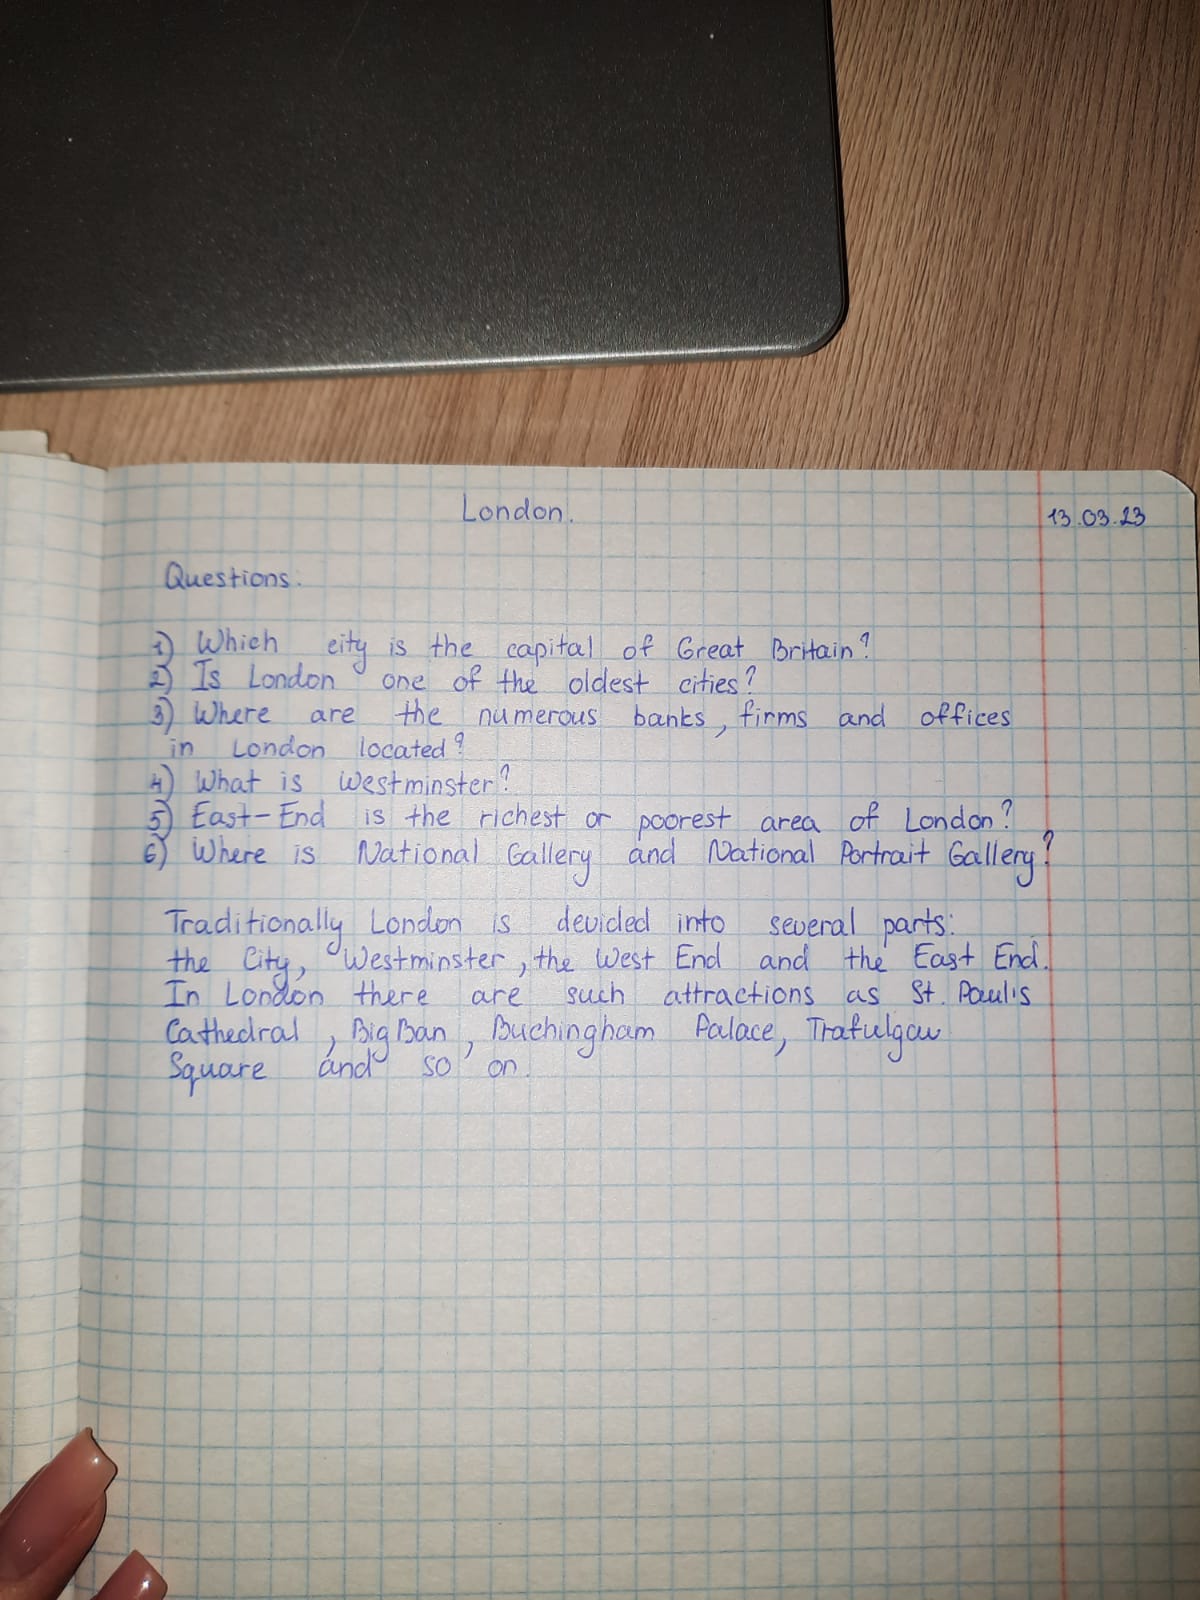 London. 13.03.23
Questions:
1) Which city is the capital of Great Britain?
2) Is London one of the oldest cities?
3) Where are the numerous banks, firms and offices
in London located?
4) What is Westminster?
5) East-End is the richest or poorest area of London?
6) Where is National Gallery and National Portrait Gallery?
Traditionally London is devided into several parts:
the City, Westminster, the West End and the East End.
In London there are such attractions as St. Paul's
Cathedral, Big Ban, Buchingham Palace, Trafulgar
Square and so on.